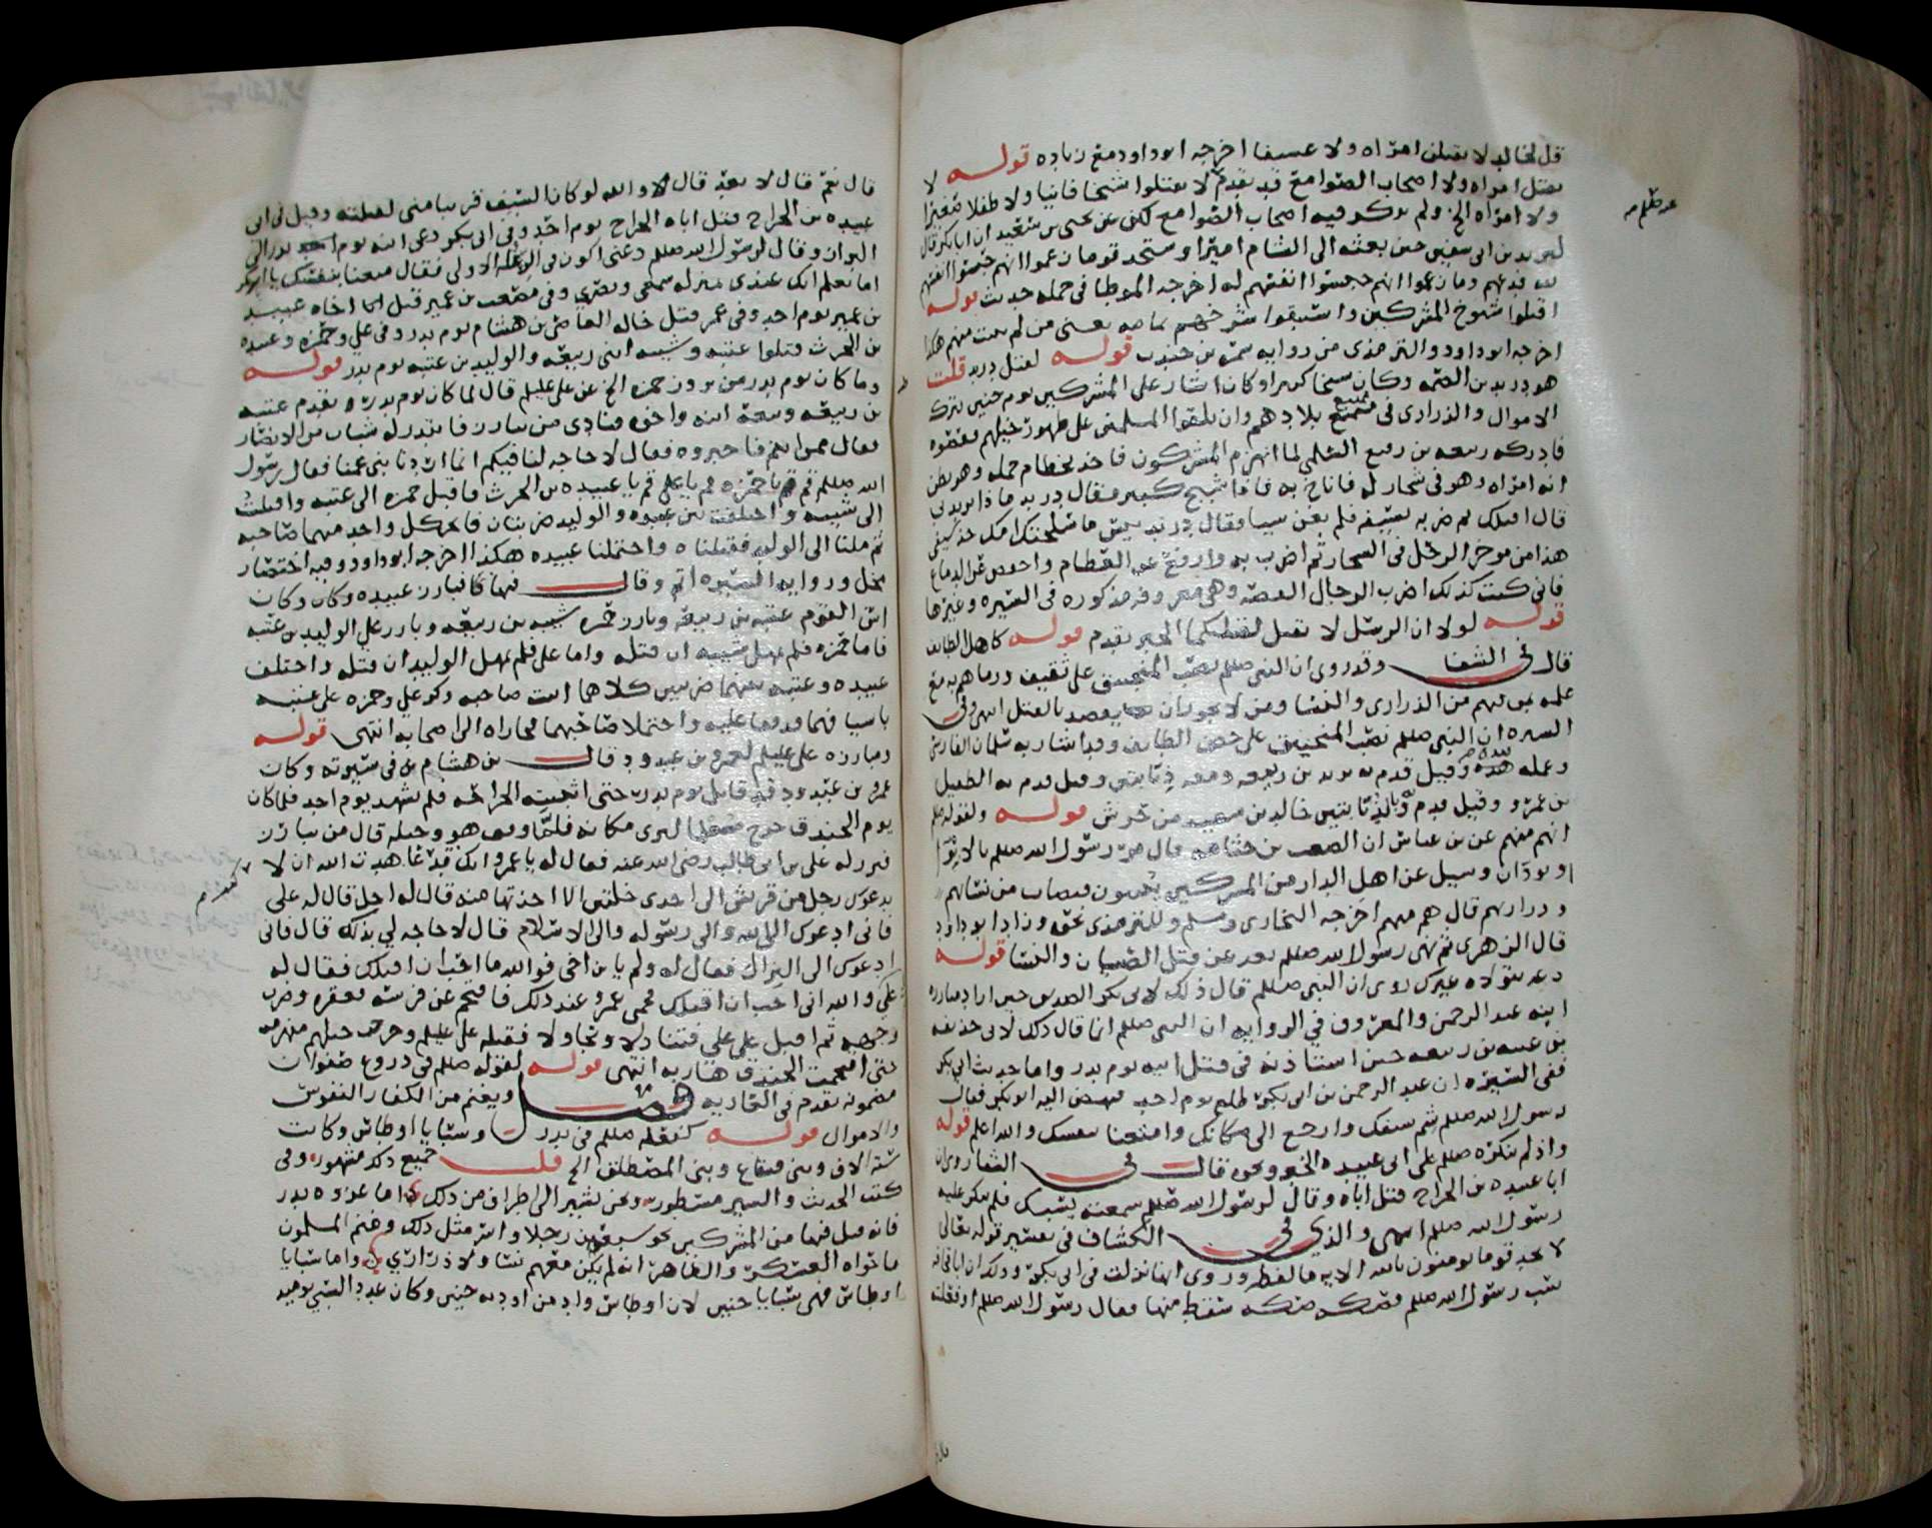 قل لخالد لا يقتلن امراه ولا عسيفا اخرجه ابو داود مع زياده قوله لا
يقتل امراه ولا اصحاب الصوامع قد تقدم لا تقتلوا شيخا فانيا ولا طفلا صغيرا
ولا امراه الخ ولم يذكر فيه اصحاب الصوامع لكن عن يحيى بن سعيد ان ابا بكر قال
ليزيد بن ابي سفين حين بعثه الى الشام اميرا وستجد قوما زعموا انهم حبسوا انفسهم
لله فدعهم وما زعموا انهم حبسوا انفسهم له اخرجه الموطا في جمله حديث قوله
اقتلوا شيوخ المشركين واستبقوا شرخهم تمامه يعني من لم ينبت منهم هكذا
اخرجه ابو داود والترمذي من روايه سمره بن جندب قوله لقتل دريد قلت
هو دريد بن الصمه وكان شيخا كبيرا وكان اشار على المشركين يوم حنين بترك
الاموال والذراري في متمنع بلادهم وان يلقوا المسلمين على ظهور خيلهم فعصوه
فادركه ربيعه بن رفيع السلمي لما انهزم المشركون فاخذ بخطام جمله وهو يظن
انه امراه وهو في شجار له فاناخ به فاذا شيخ كبير فقال دريد ماذا تريد بي
قال اقتلك ثم ضربه بسيفه فلم يغن شيا فقال دريد بيس ما سلحتك امك خذ سيفي
هذا من موخر الرحل في الشجار ثم اضرب به وارفع عن العظام واخفض عن الدماغ
فاني كنت كذلك اضرب الرجال القصه وهي معروفه مذكوره في السيره وغيرها
قوله لولا ان الرسل لا تقتل لقتلتكما الخبر تقدم قوله كاهل الطايف
قال في الشفا وقد روي ان النبي صللم نصب المنجنيق على ثقيف ورماهم به مع
علمه بمن فيهم من الذراري والنسا ومن لا يجوز ان يقصد بالقتل انتهى وفي
السيره ان النبي صللم نصب المنجنيق على حصن الطايف وقد اشار به سلمان الفارسي
وعمله بيده وقيل قدم به يزيد بن ربيعه ومعه دبابتين وقيل قدم به الطفيل
بن عمرو وقيل قدم به وبالدبابتين خالد بن سعيد من جرش قوله ولقوله صللم
انهم منهم عن بن عباس ان الصعب بن جثامه قال مر رسول الله صللم بالابوا
او بودان وسيل عن اهل الدار من المشركين يبيتون فيصاب من نسائهم
وذراريهم قال هم منهم اخرجه البخاري ومسلم وللترمذي نحوه وزاد ابو داود
قال الزهري ثم نهى رسول الله صللم بعد عن قتل الصبيان والنسا قوله
دعه يتولاه غيرك روي ان النبي صللم قال ذلك لابي بكر الصديق حين اراد مبارزه
ابنه عبد الرحمن والمعروف في الروايه ان النبي صللم انما قال ذلك لابي حذيفه
بن عتبه بن ربيعه حين استاذنه في قتل ابيه يوم بدر واما حديث ابي بكر
ففي السيره ان عبد الرحمن بن ابي بكر طلع يوم احد فنهض اليه ابو بكر فقال
رسول الله صللم شم سيفك وارجع الى مكانك وامتعنا بنفسك والله اعلم قوله
واذ لم ينكره صللم على ابي عبيده الخبر ونحوه قال في الشفا روي ان
ابا عبيده بن الجراح قتل اباه وقال لرسول الله صللم سمعته يشبك فلم ينكر عليه
رسول الله صللم انتهى والذي في الكشاف في تفسير قوله تعالى
لا تجد قوما يومنون بالله الايه ما لفظه وروي انها نزلت في ابي بكر وذلك ان ابا قحافه
سب رسول الله صللم فصكه صكه سقط منها فقال رسول الله صللم او فعلته
قال نعم قال لا تعد قال لا والله لو كان السيف قريبا مني لقتلته وقيل في ابي
عبيده بن الجراح قتل اباه الجراح يوم احد وفي ابي بكر دعى ابنه يوم بدر الى
البراز وقال لرسول الله صللم دعني اكون في الرعله الاولى فقال متعنا بنفسك يا ابا بكر
اما تعلم انك عندي بمنزله سمعي وبصري وفي مصعب بن عمير قتل اخاه عبيد
بن عمير يوم احد وفي عمر قتل خاله العاص بن هشام يوم بدر وفي علي وحمزه وعبيده
بن الحرث قتلوا عتبه وشيبه ابني ربيعه والوليد بن عتبه يوم بدر قوله
وما كان يوم بدر من بروز حمزه الخ عن علي عليلم قال لما كان يوم بدر تقدم عتبه
بن ربيعه وتبعه ابنه واخوه فنادى من يبارز فانتدب له شباب من الانصار
فقال ممن انتم فاخبروه فقال لا حاجه لنا فيكم انما اردنا بني عمنا فقال رسول
الله صللم قم يا حمزه قم يا علي قم يا عبيده بن الحرث فاقبل حمزه الى عتبه واقبلت
الى شيبه واختلفت بين عبيده والوليد ضربتان فاثخن كل واحد منهما صاحبه
ثم ملنا الى الوليد فقتلناه واحتملنا عبيده هكذا اخرجه ابو داود وفيه اختصار
مخل وروايه السيره اتم وقال فيها فبارز عبيده وكان وكان
اسن القوم عتبه بن ربيعه وبارز حمزه شيبه بن ربيعه وبارز علي الوليد بن عتبه
فاما حمزه فلم يمهل شيبه ان قتله واما علي فلم يمهل الوليد ان قتله واختلف
عبيده وعتبه بينهما ضربتين كلاهما اثبت صاحبه وكر علي وحمزه على عتبه
باسيافهما فدففا عليه واحتملا صاحبهما فحازاه الى اصحابه انتهى قوله
ومبارزه علي عليلم لعمرو بن عبد ود قال بن هشام في سيرته وكان
عمرو بن عبد ود قد قاتل يوم بدر حتى اثبتته الجراحه فلم يشهد يوم احد فلما كان
يوم الخندق خرج معلما ليرى مكانه فلما وقف هو وخيله قال من يبارز
فبرز له علي بن ابي طالب رضي الله عنه فقال له يا عمرو انك قد عاهدت الله ان لا
يدعوك رجل من قريش الى احدى خلتين الا اخذتها منه قال له اجل قال له علي
فاني ادعوك الى الله والى رسوله والى الاسلام قال لا حاجه لي بذلك قال فاني
ادعوك الى النزال فقال له ولم يا بن اخي فوالله ما احب ان اقتلك فقال له
علي والله اني احب ان اقتلك فحمي عمرو عند ذلك فاقتحم عن فرسه فعقره وضرب
وجهه ثم اقبل على علي فتنازلا وتجاولا فقتله علي عليلم وخرجت خيلهم منهزمه
حتى اقتحمت الخندق هاربه انتهى قوله لقوله صللم في دروع صفوان
مضمونه تقدم في العاريه فصل ويغنم من الكفار النفوس
والاموال قوله كفعله صللم في بدر وسبايا اوطاس وكانت
سته الاف وبني قينقاع وبني المصطلق الخ قلت جميع ذلك مشهور وفي
كتب الحديث والسير مسطور ونحن نشير الى اطراف من ذلك اما غزوه بدر
فانه قتل فيها من المشركين نحو سبعين رجلا واسر مثل ذلك وغنم المسلمون
ما حواه العسكر والظاهر انه لم يكن معهم نسا ولا ذراري واما سبايا
اوطاس فهي سبايا حنين لان اوطاس واد من اوديه حنين وكان عدد السبي يوميذ